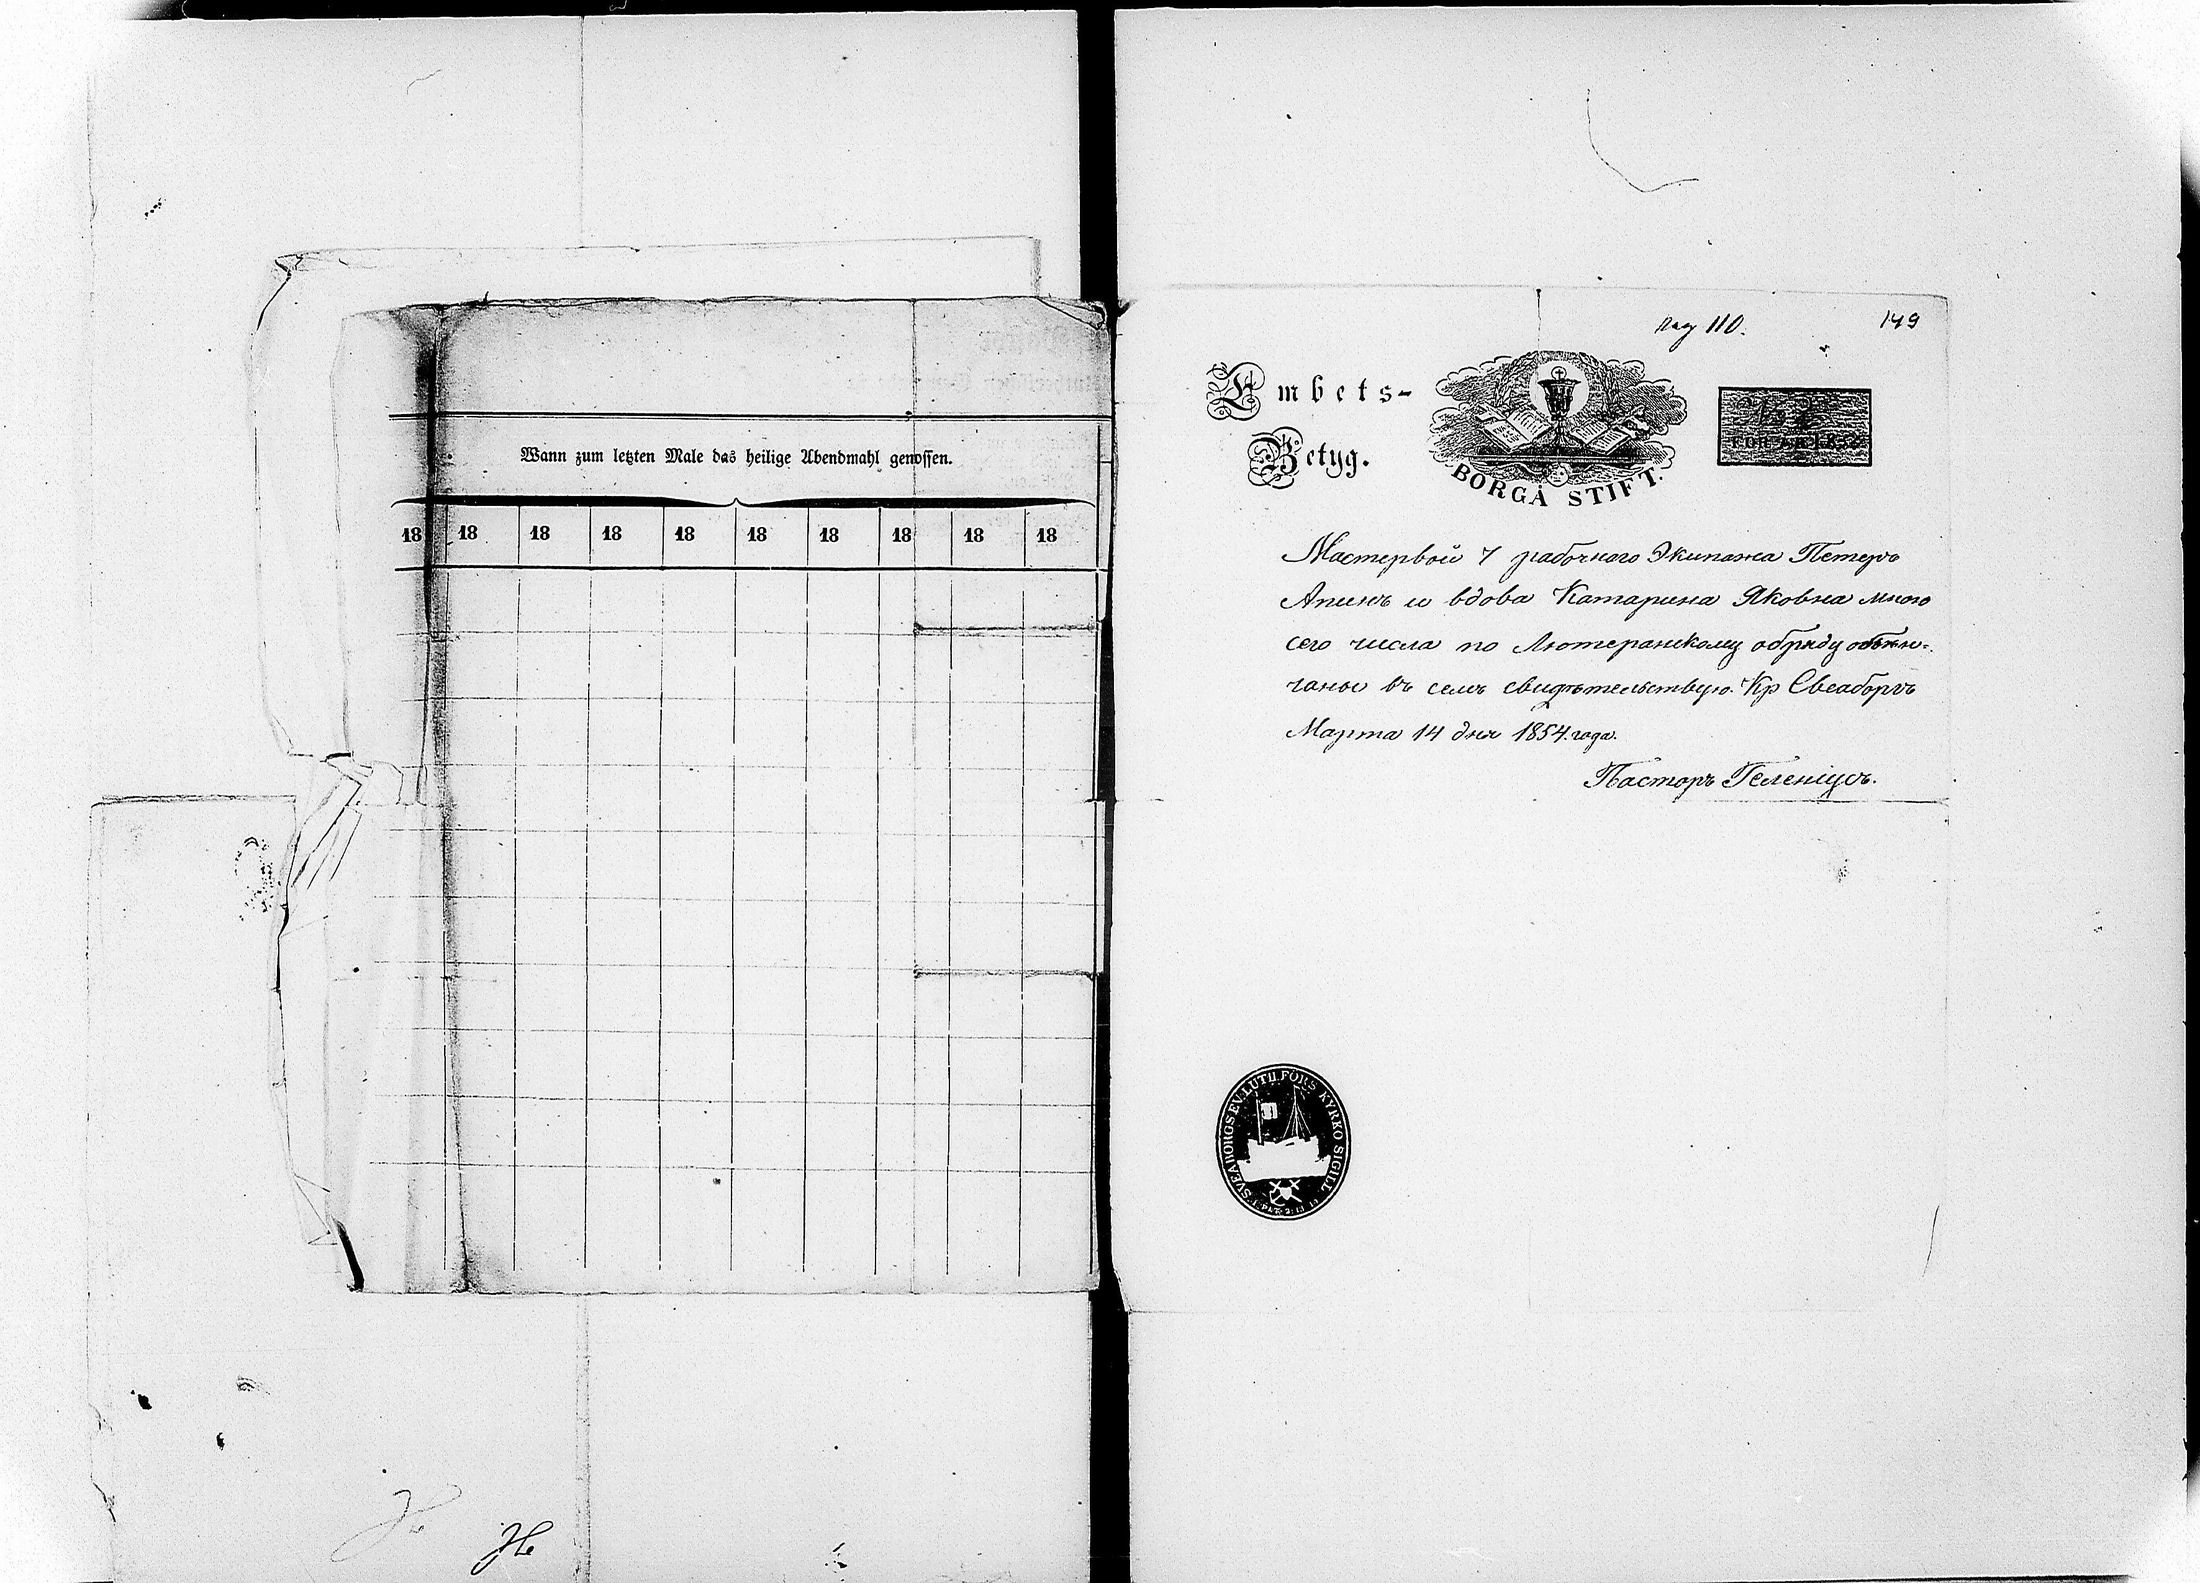 Wann zum letzten Male das heilige Abendmahl genossen.
18 18 18 18 18 18 18 18 18 18
pag 110.
149
Embets-
Betyg.
BORGÅ STIFT.
FÖR ÅR 185
Мастервой 7 рабочнаго Экипажа Петеръ
Апинъ и вдова Катарина Яковна мною
сего числа по Лютеранскому обряду обвѣн-
чаны въ семъ свидѣтельствую. Кр Свеаборгъ
Марта 14 дня 1854 года.
Пасторъ Геленіусъ.
SVEABORGS EV. LUTH. FÖRS. KYRKO SIGILL